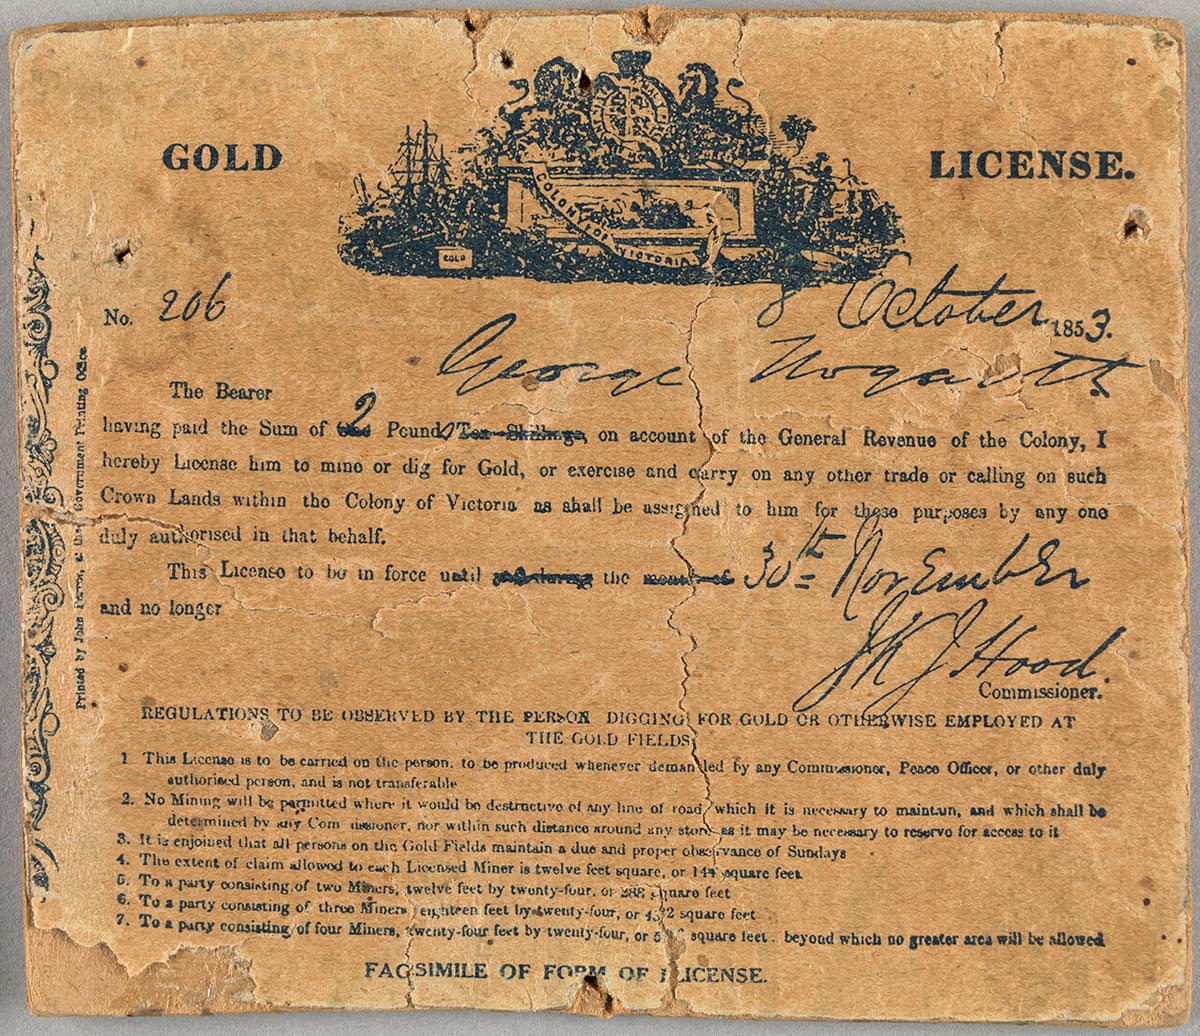 GOLD LICENSE.
COLONY OF VICTORIA
GOLD
No. 206 8 October 1853.
George Hogarth
The Bearer
having paid the Sum of 2 Pound, Ten Shillings, on account of the General Revenue of the Colony, I
hereby License him to mine or dig for Gold, or exercise and carry on any other trade or calling on such
Crown Lands within the Colony of Victoria as shall be assigned to him for these purposes by any one
duly authorised in that behalf.
This License to be in force until the month of 30th November
and no longer
Commissioner.
REGULATIONS TO BE OBSERVED BY THE PERSON DIGGING FOR GOLD OR OTHERWISE EMPLOYED AT
THE GOLD FIELDS
1 This License is to be carried on the person, to be produced whenever demanded by any Commissioner, Peace Officer, or other duly
authorised person, and is not transferable
2. No Mining will be permitted where it would be destructive of any line of road, which it is necessary to maintain, and which shall be
determined by any Commissioner, nor within such distance around any store as it may be necessary to reserve for access to it
3. It is enjoined that all persons on the Gold Fields maintain a due and proper observance of Sundays
4. The extent of claim allowed to each Licensed Miner is twelve feet square, or 144 square feet
5. To a party consisting of two Miners, twelve feet by twenty-four, or 288 square feet
6. To a party consisting of three Miners, eighteen feet by twenty-four, or 432 square feet
7. To a party consisting of four Miners, twenty-four feet by twenty-four, or square feet. beyond which no greater area will be allowed
FACSIMILE OF FORM OF LICENSE.
Printed by John Ferres, at the Government Printing Office